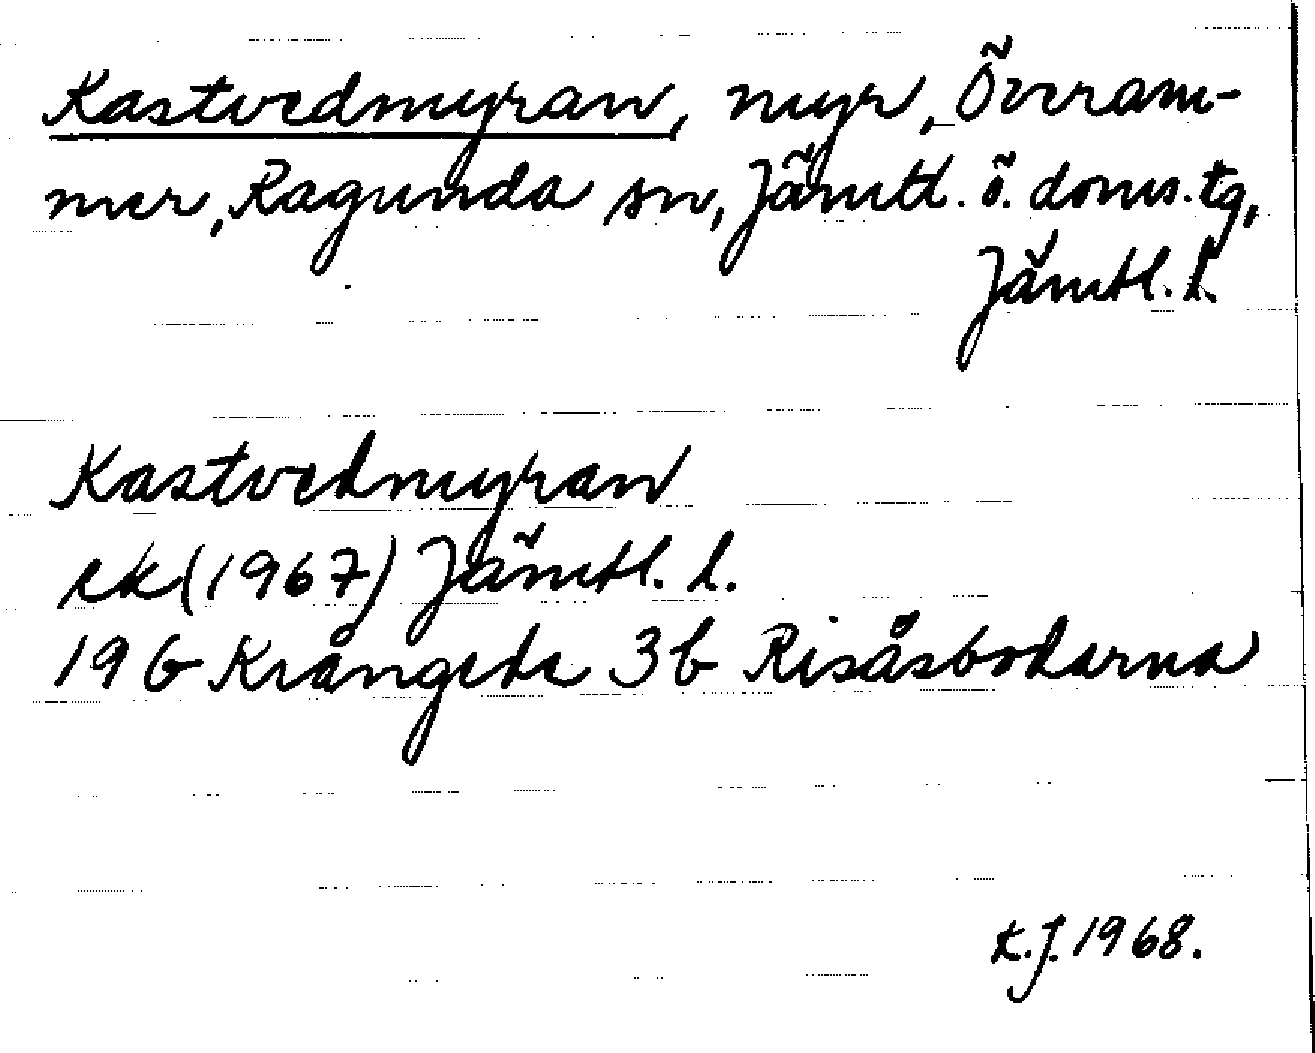 Kastvedmyran, myr, Överam-
mer, Ragunda sn, Jämtl. ö. doms.tg,
Jämtl. l.
Kastvedmyran
ek (1967) Jämtl. l.
19 G Krångede 3b Risåsbodarna
K.J. 1968.